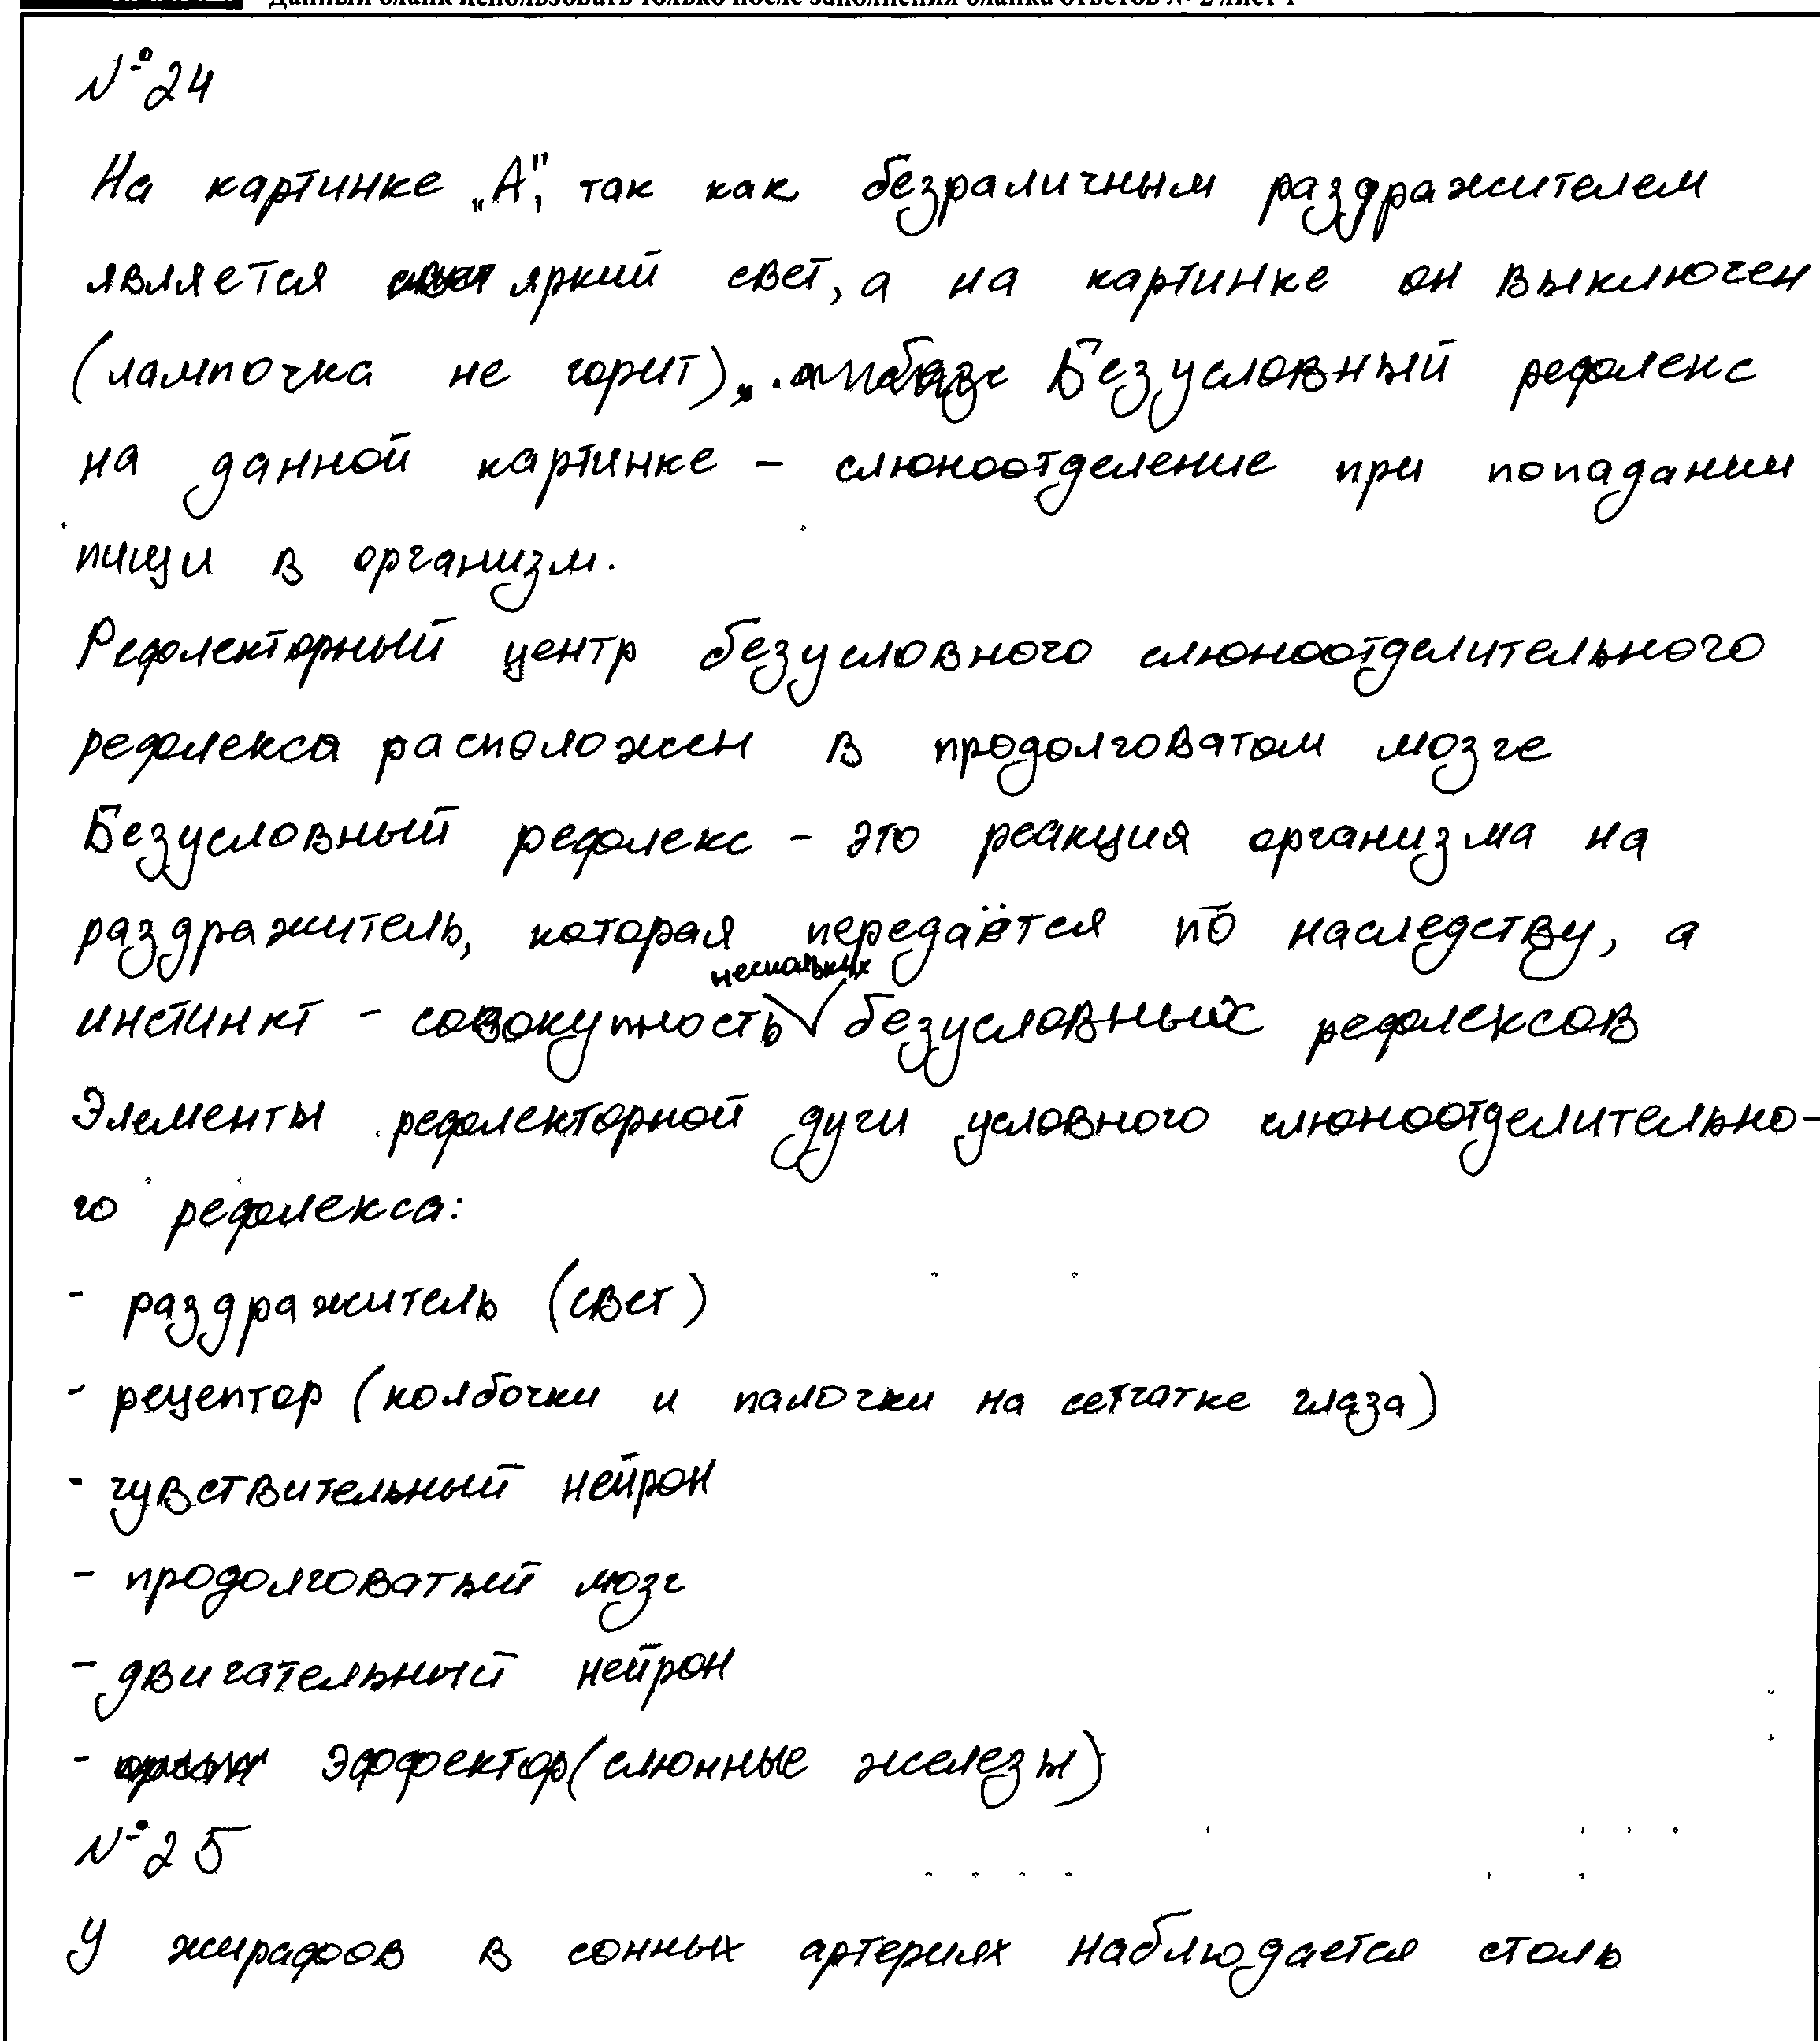 Данный бланк использовать только после заполнения бланка ответов № 2 лист 1
№ 24
На картинке „А", так как безраличным раздражителем
является яркий свет, а на картинке он выключен
(лампочка не горит). Безусловный рефлекс
на данной картинке – слюноотделение при попадании
пищи в организм.
Рефлекторный центр безусловного слюноотделительного
рефлекса расположен в продолговатом мозге
Безусловный рефлекс – это реакция организма на
раздражитель, которая передаётся по наследству, а
инстинкт – совокупность нескольких безусловных рефлексов
Элементы рефлекторной дуги условного слюноотделительно-
го рефлекса:
- раздражитель (свет)
- рецептор (колбочки и палочки на сетчатке глаза)
- чувствительный нейрон
- продолговатый мозг
- двигательный нейрон
- эффектор (слюнные железы)
№ 25
У жирафов в сонных артериях наблюдается столь